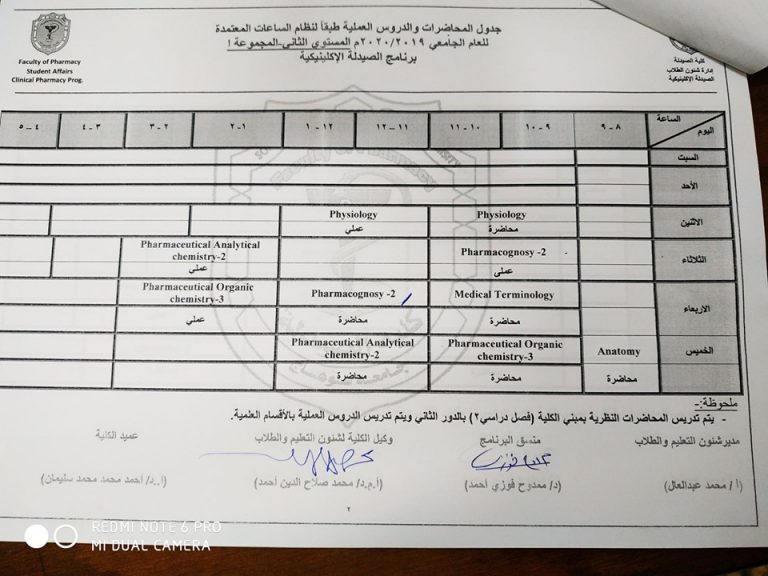 جدول المحاضرات والدروس العملية طبقاً لنظام الساعات المعتمدة
للعام الجامعي ٢٠٢٠/٢٠١٩م المستوي الثانى-المجموعة ا
برنامج الصيدلة الإكلينيكية
كلية الصيدلة
إدارة شئون الطلاب
الصيدلة الإكلينيكية
Faculty of Pharmacy
Student Affairs
Clinical Pharmacy Prog.
الساعة
اليوم
٨ - ٩
٩ - ١٠
١٠ - ١١
١١ - ١٢
١٢ - ١
١ - ٢
٢ - ٣
٣ - ٤
٤ - ٥
السبت
الأحد
الاثنين
Physiology
محاضرة
Physiology
عملي
الثلاثاء
Pharmacognosy -2
عملى
Pharmaceutical Analytical
chemistry-2
عملي
الاربعاء
Medical Terminology
محاضرة
Pharmacognosy -2
محاضرة
Pharmaceutical Organic
chemistry-3
عملي
الخميس
Anatomy
محاضرة
Pharmaceutical Organic
chemistry-3
محاضرة
Pharmaceutical Analytical
chemistry-2
محاضرة
ملحوظة:-
- يتم تدريس المحاضرات النظرية بمبني الكلية (فصل دراسي٢) بالدور الثاني ويتم تدريس الدروس العملية بالأقسام العلمية.
مدير شئون التعليم والطلاب
منسق البرنامج
وكيل الكلية لشئون التعليم والطلاب
عميد الكلية
(أ / محمد عبدالعال)
(د/ ممدوح فوزي أحمد)
(أ.م.د/ محمد صلاح الدين أحمد)
(أ.د/ أحمد محمد محمد سليمان)
٢
REDMI NOTE 6 PRO
MI DUAL CAMERA